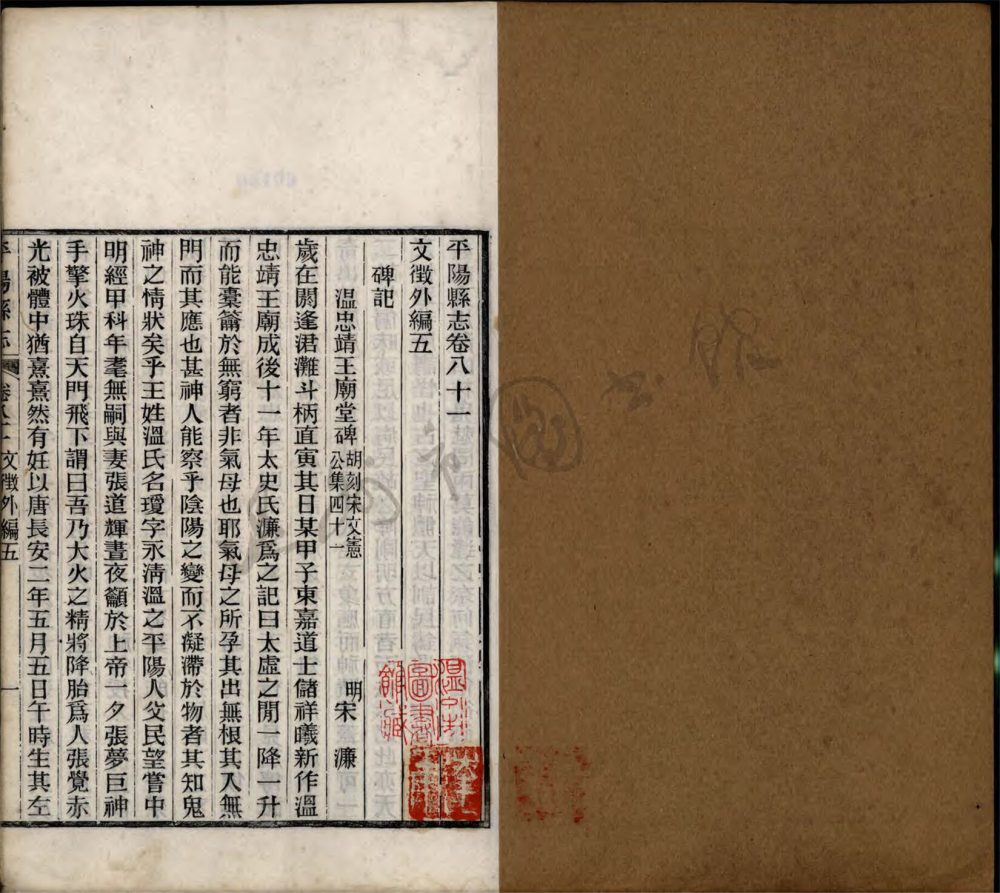 平陽縣志卷八十一
文徵外編五
碑記
溫忠靖王廟堂碑 胡刻宋文憲公集四十一 明宋 濂
歲在閼逢涒灘斗柄直寅其日某甲子東嘉道士儲祥曦新作溫
忠靖王廟成後十一年太史氏濂爲之記曰太虛之閒一降一升
而能橐籥於無窮者非氣母也耶氣母之所孕其出無根其入無
門而其應也甚神人能察乎陰陽之變而不凝滯於物者其知鬼
神之情狀矣乎王姓溫氏名瓊字永淸溫之平陽人父民望嘗中
明經甲科年耄無嗣與妻張道輝晝夜籲於上帝一夕張夢巨神
手擎火珠自天門飛下謂曰吾乃大火之精將降胎爲人張覺赤
光被體中猶熹熹然有妊以唐長安二年五月五日午時生其左
平陽縣志 卷八十一 文徵外編五 一
溫州 圖書 館藏